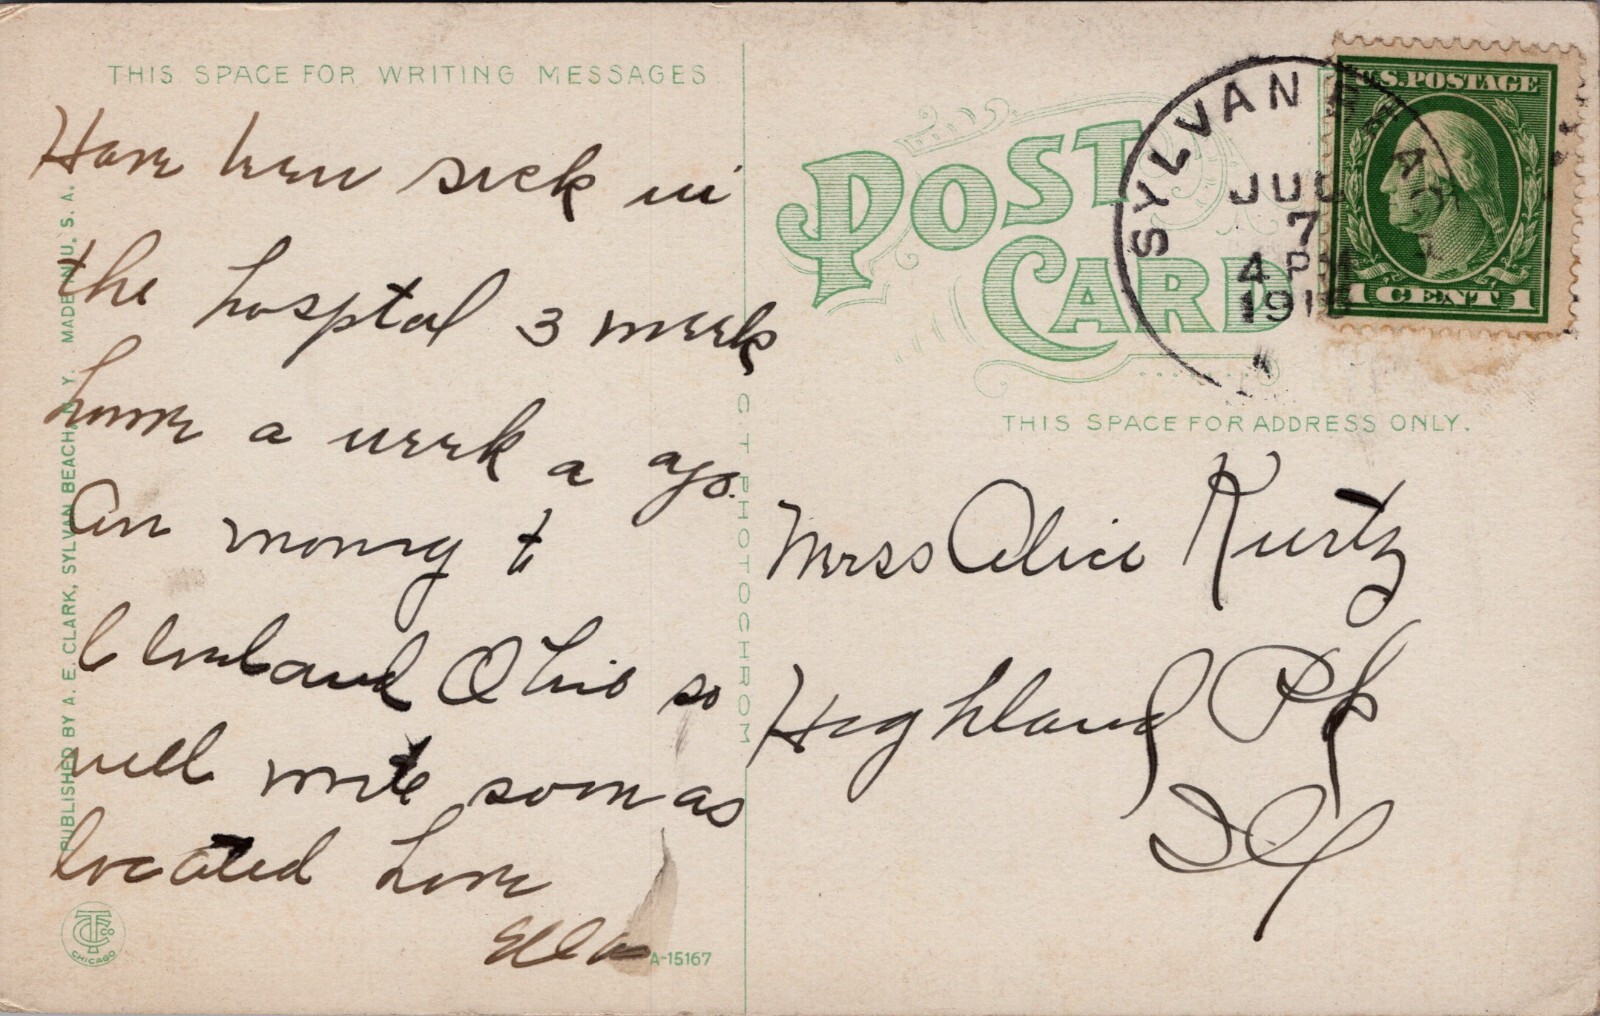 THIS SPACE FOR WRITING MESSAGES
Have been sick in
the hosptal 3 week
home a week a ago.
Am moving to
Cleveland Ohio so
will write soon as
located Love
Ella
PUBLISHED BY A. E. CLARK, SYLVAN BEACH, N.Y. MADE IN U. S. A.
C T PHOTOCHROM
CT Co
CHICAGO
A-15167
POST
CARD
SYLVAN BEACH
7
4 PM
U.S. POSTAGE
1 CENT 1
THIS SPACE FOR ADDRESS ONLY.
Miss Alice Kurtz
Highland Pk
Ill